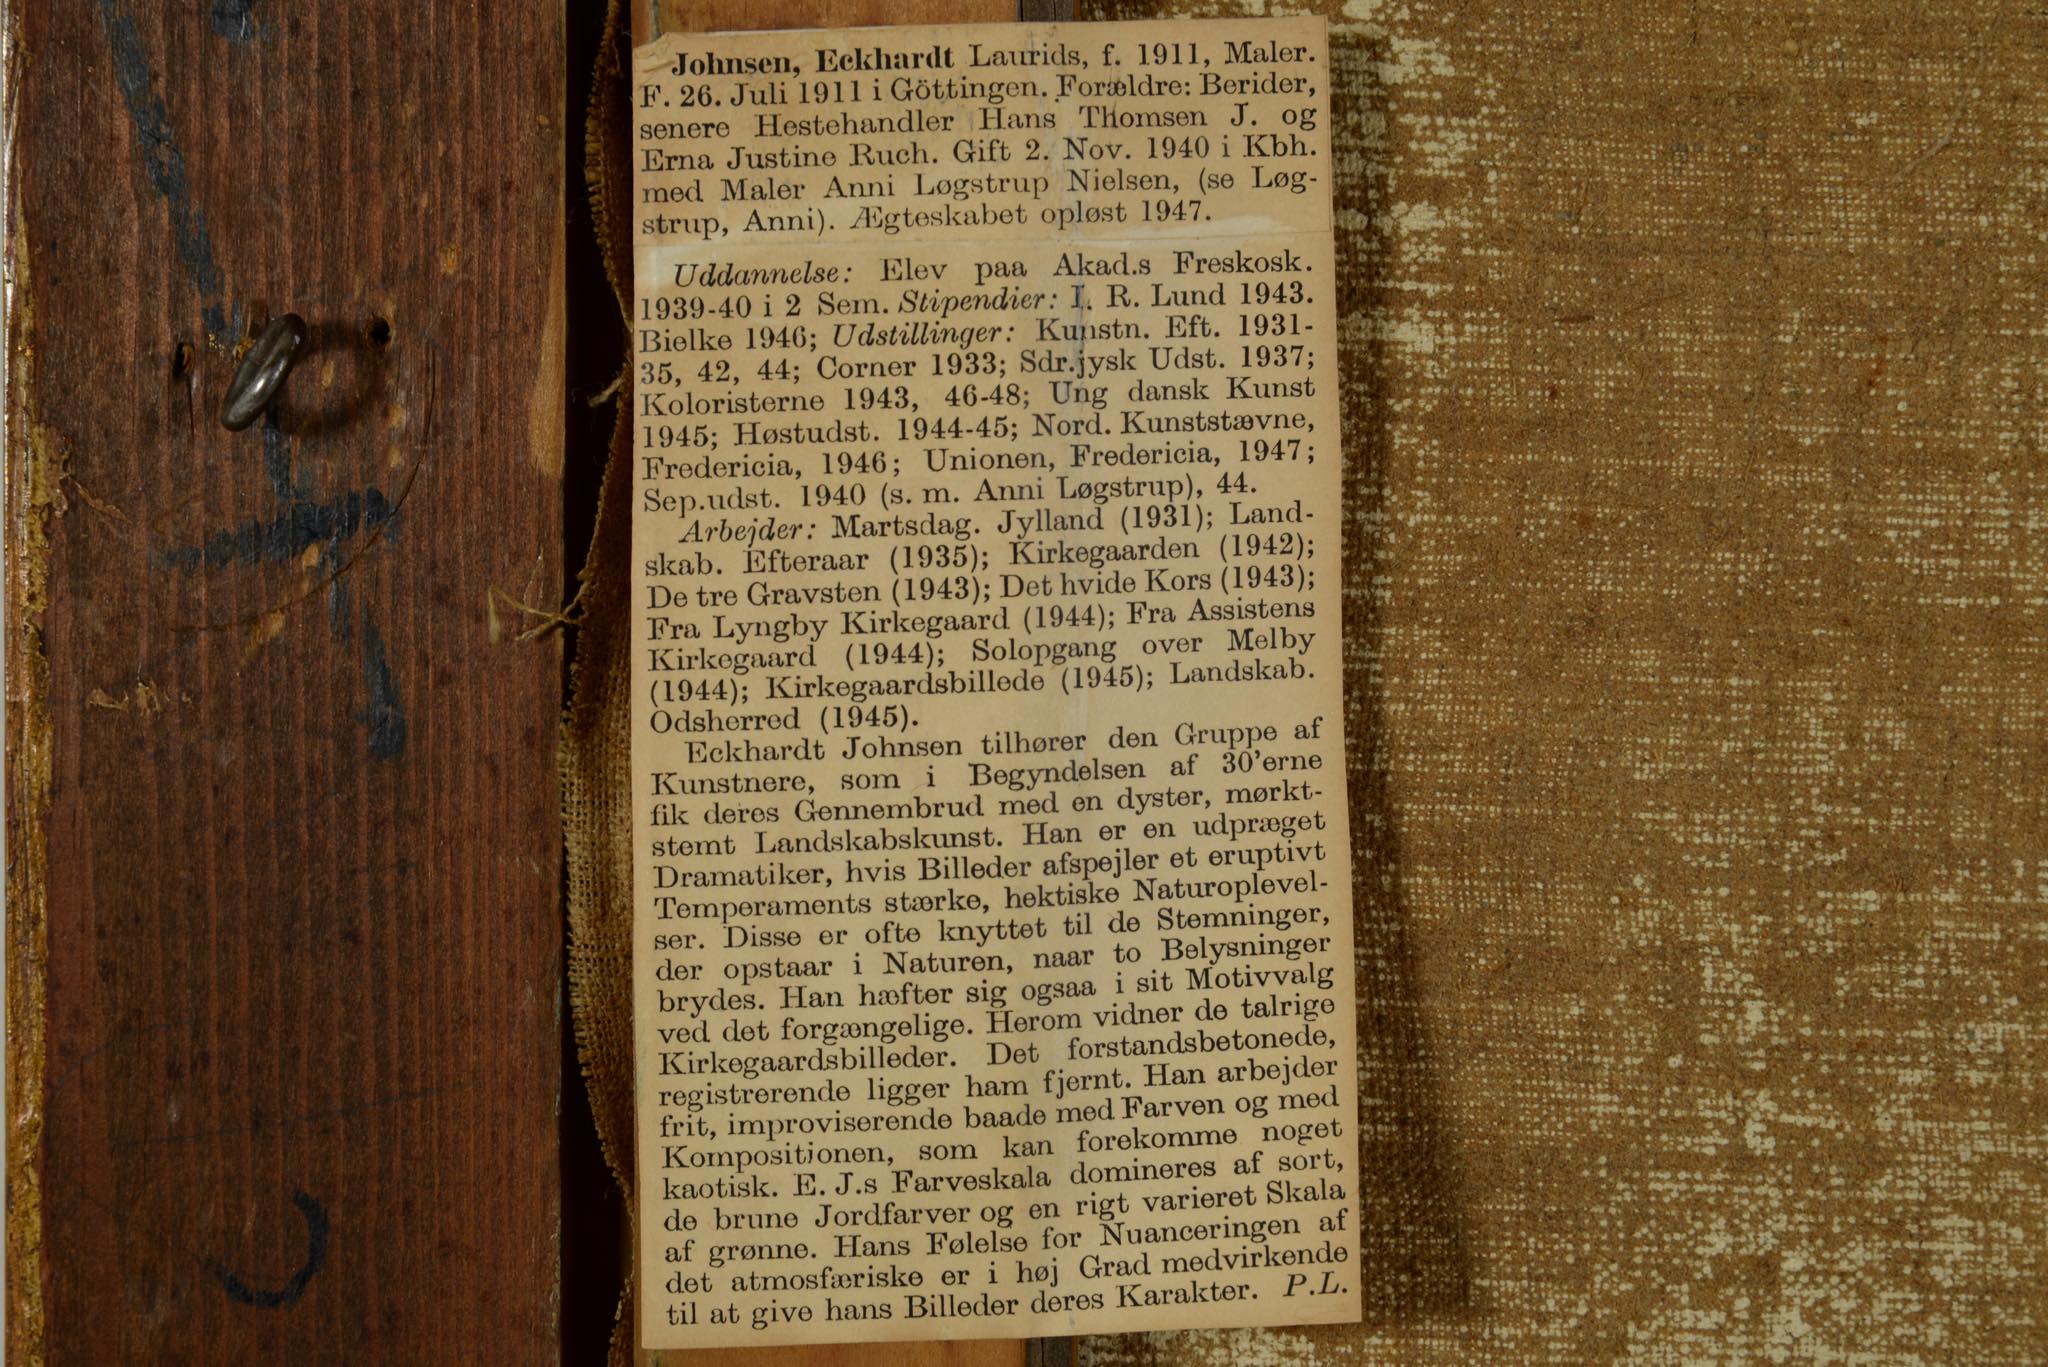 Johnsen, Eckhardt Laurids, f. 1911, Maler.
F. 26. Juli 1911 i Göttingen. Forældre: Berider,
senere Hestehandler Hans Thomsen J. og
Erna Justine Ruch. Gift 2. Nov. 1940 i Kbh.
med Maler Anni Løgstrup Nielsen, (se Løg-
strup, Anni). Ægteskabet opløst 1947.
Uddannelse: Elev paa Akad.s Freskosk.
1939-40 i 2 Sem. Stipendier: I. R. Lund 1943.
Bielke 1946; Udstillinger: Kunstn. Eft. 1931-
35, 42, 44; Corner 1933; Sdr.jysk Udst. 1937;
Koloristerne 1943, 46-48; Ung dansk Kunst
1945; Høstudst. 1944-45; Nord. Kunststævne,
Fredericia, 1946; Unionen, Fredericia, 1947;
Sep.udst. 1940 (s. m. Anni Løgstrup), 44.
Arbejder: Martsdag. Jylland (1931); Land-
skab. Efteraar (1935); Kirkegaarden (1942);
De tre Gravsten (1943); Det hvide Kors (1943);
Fra Lyngby Kirkegaard (1944); Fra Assistens
Kirkegaard (1944); Solopgang over Melby
(1944); Kirkegaardsbillede (1945); Landskab.
Odsherred (1945).
Eckhardt Johnsen tilhører den Gruppe af
Kunstnere, som i Begyndelsen af 30'erne
fik deres Gennembrud med en dyster, mørkt-
stemt Landskabskunst. Han er en udpræget
Dramatiker, hvis Billeder afspejler et eruptivt
Temperaments stærke, hektiske Naturoplevel-
ser. Disse er ofte knyttet til de Stemninger,
der opstaar i Naturen, naar to Belysninger
brydes. Han hæfter sig ogsaa i sit Motivvalg
ved det forgængelige. Herom vidner de talrige
Kirkegaardsbilleder. Det forstandsbetonede,
registrerende ligger ham fjernt. Han arbejder
frit, improviserende baade med Farven og med
Kompositionen, som kan forekomme noget
kaotisk. E. J.s Farveskala domineres af sort,
de brune Jordfarver og en rigt varieret Skala
af grønne. Hans Følelse for Nuanceringen af
det atmosfæriske er i høj Grad medvirkende
til at give hans Billeder deres Karakter. P.L.